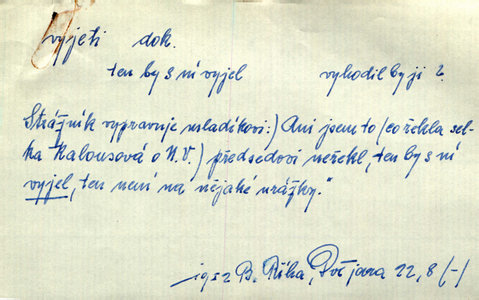 vyjeti dok.
ten by s ní vyjel vyhodil by ji ?
Strážník vypravuje mladíkovi:) Ani jsem to (co řekla sel-
ka Kalousová o N.V.) předsedovi neřekl, ten by s ní
vyjel, ten není na nějaké urážky."
1952 B. Říha, Dvě jara 22, 8 (-)